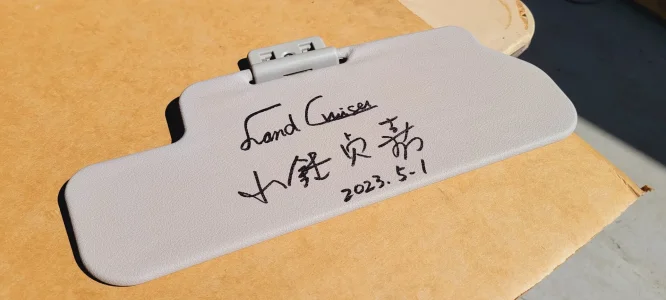 Land Cruiser
小鑓貞嘉
2023.5-1